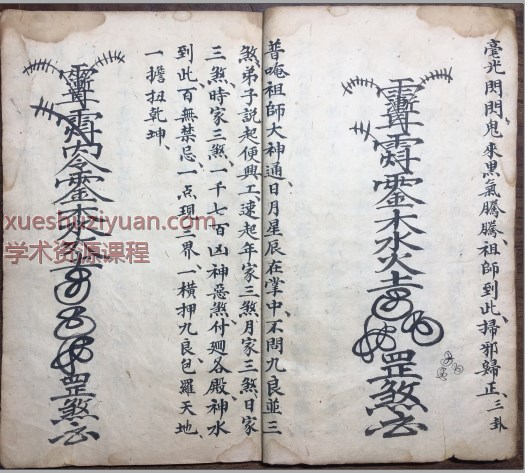 毫光閃閃、鬼來黑氣騰騰、祖師到此、掃邪歸正、三卦
木水火土罡煞
普唵祖師大神通、日月星辰在掌中、不問九良並三
煞、弟子説起便興工、速起年家三煞、月家三煞、日家
三煞、時家三煞、一千七百凶神惡煞、付廻各殿、神水
到此、百無禁忌、一点現三界、一橫押九良、包羅天地、
一擔扭乾坤、
罡煞
xueshuziyuan.com
学术资源课程